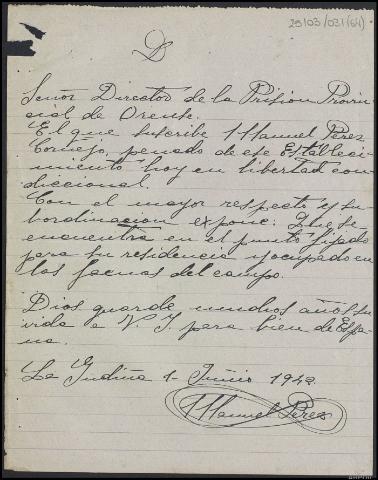 25103/031(64)
D
Señor Director de la Prision Provin
cial de Orense.
El que suscribe Manuel Pérez
Cornejo, penado de ese Estableci
miento hoy en libertad con
diccional.
Con el mayor respecto y su
bordinacion expone: Que se
encuentra en el punto fijado
para su residencia y ocupado en
las faenas del campo.
Dios guarde muchos años su
vida a V. S. para bien de Espa
ña.
La Gudiña 1- Junio 1942
Manuel Pérez